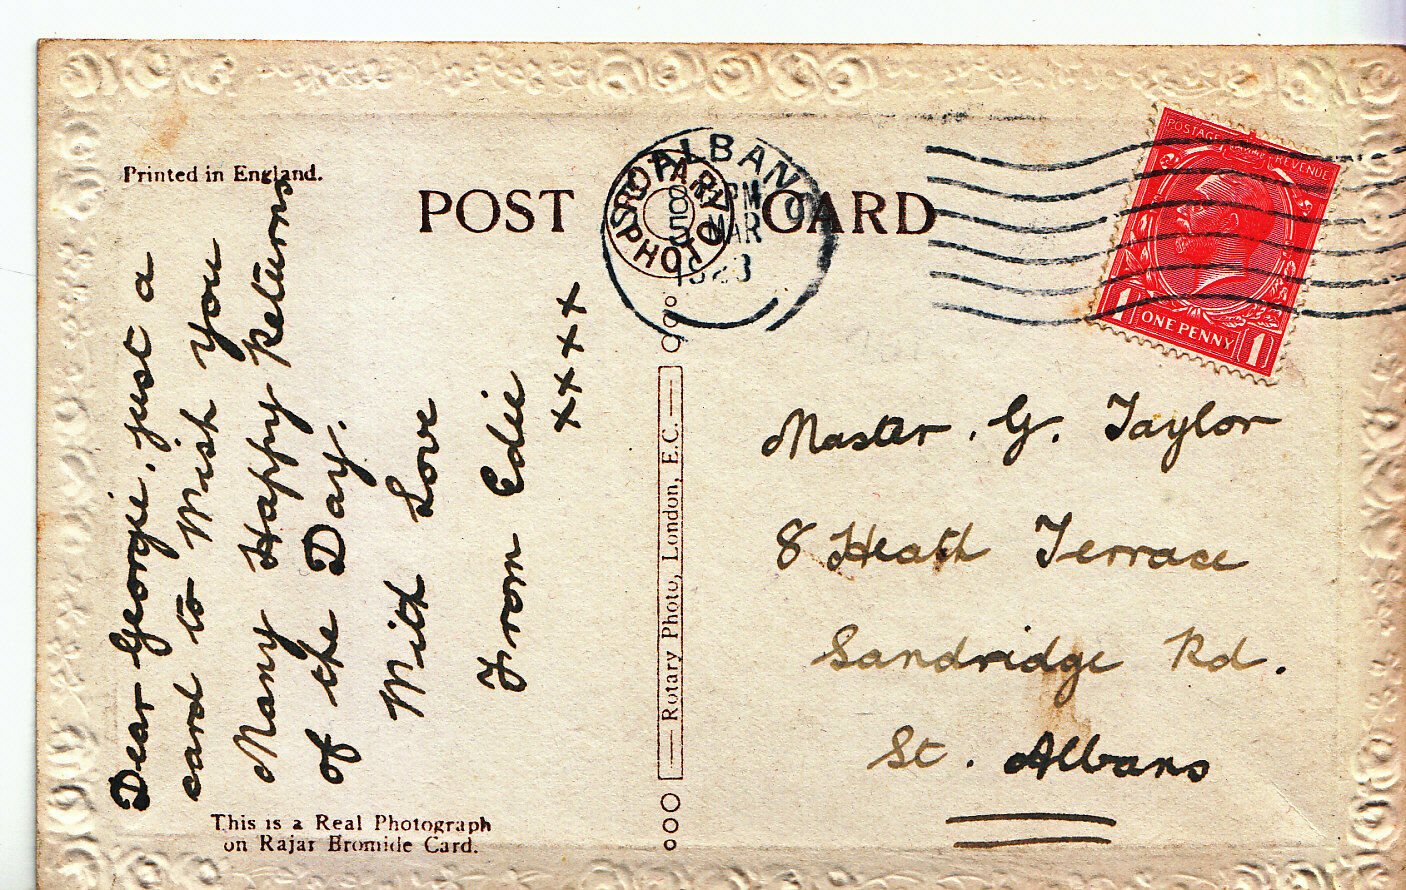 Printed in England.
POST CARD
ROTARY PHOTO
ALBANS
PM
MAR
POSTAGE REVENUE
1 ONE PENNY 1
Dear Georgie. just a
card to Wish you
Many Happy Returns
of the Day.
With Love
From Edie
xxxx
Rotary Photo, London, E.C.
Master. G. Taylor
8 Heath Terrace
Sandridge Rd.
St. Albans
This is a Real Photograph
on Rajar Bromide Card.